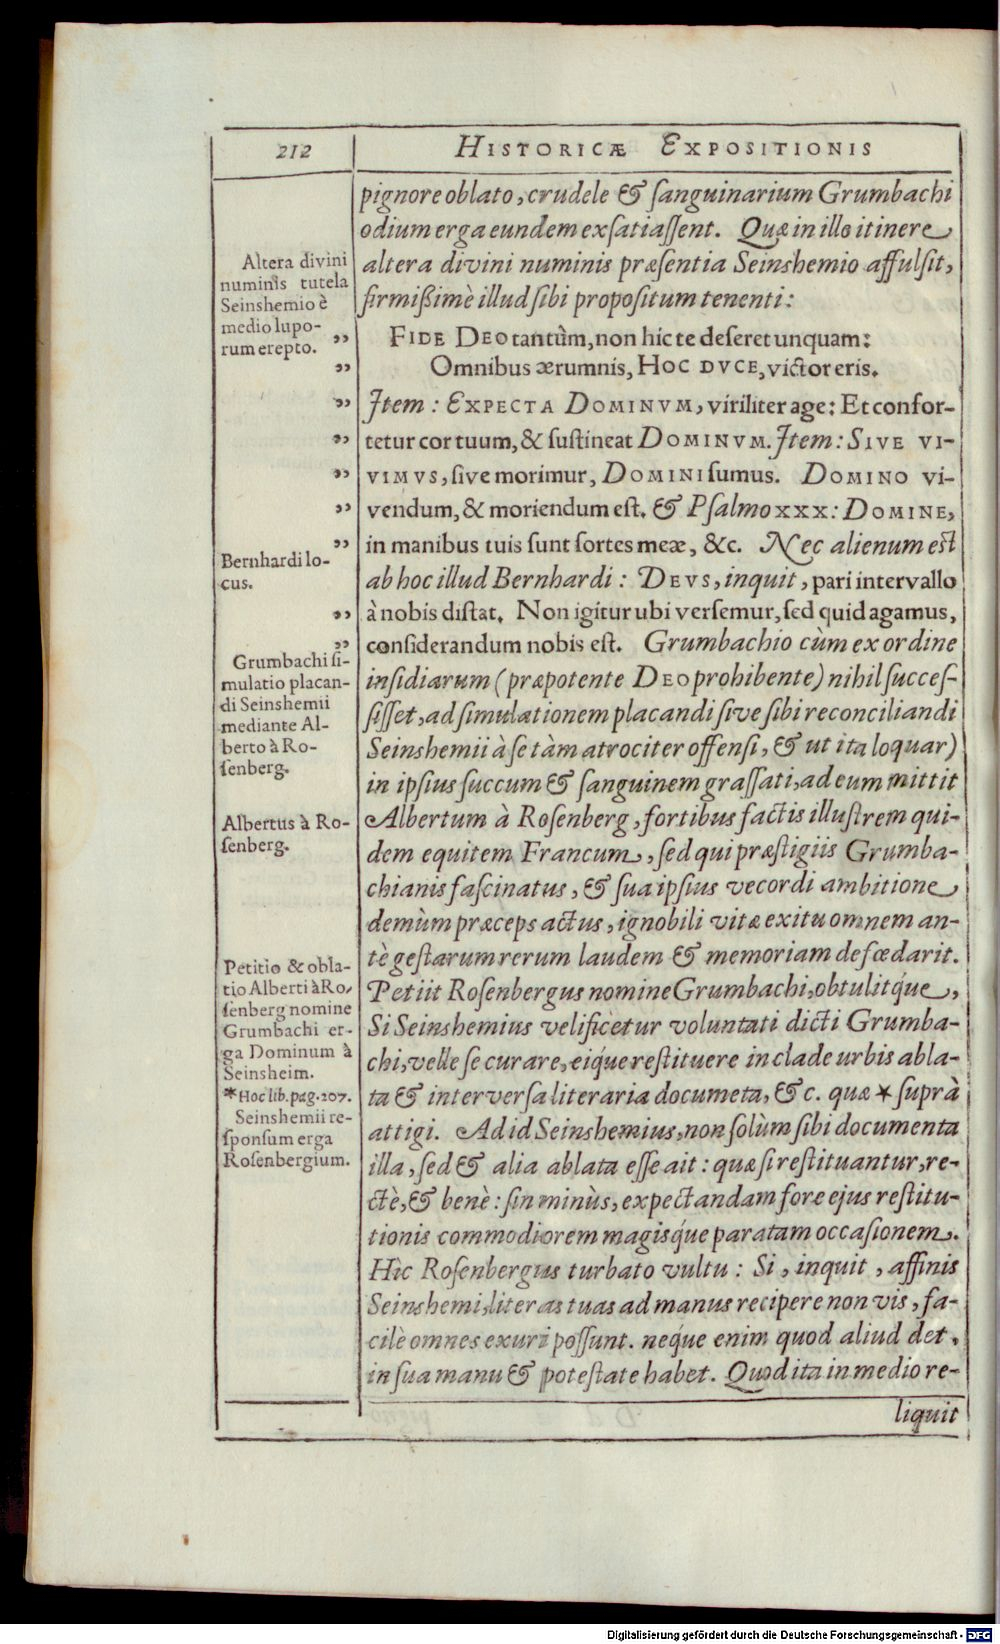 212
HISTORICÆ EXPOSITIONIS
pignore oblato, crudele & ſanguinarium Grumbachi
odium erga eundem exſatiaſſent. Quæ in illo itinere
altera divini numinis præſentia Seinshemio affulſit,
firmißimè illud ſibi propoſitum tenenti:
FIDE DEO tantùm, non hic te deſeret unquam:
Omnibus ærumnis, HOC DVCE, victor eris.
Item: EXPECTA DOMINVM, viriliter age: Et confor-
tetur cor tuum, & ſuſtineat DOMINVM. Item: SIVE VI-
VIMVS, ſive morimur, DOMINI ſumus. DOMINO vi-
vendum, & moriendum eſt. & Pſalmo XXX: DOMINE,
in manibus tuis ſunt ſortes meæ, &c. Nec alienum eſt
ab hoc illud Bernhardi: DEVS, inquit, pari intervallo
à nobis diſtat. Non igitur ubi verſemur, ſed quid agamus,
conſiderandum nobis eſt. Grumbachio cùm ex ordine
inſidiarum (præpotente DEO prohibente) nihil ſucceſ-
ſiſſet, ad ſimulationem placandi ſive ſibi reconciliandi
Seinshemii à ſe tàm atrociter offenſi, & ut ita loquar)
in ipſius ſuccum & ſanguinem graſſati, ad eum mittit
Albertum à Roſenberg, fortibus factis illuſtrem qui-
dem equitem Francum, ſed qui præſtigiis Grumba-
chianis faſcinatus, & ſua ipſius vecordi ambitione
demùm præceps actus, ignobili vitæ exitu omnem an-
tè geſtarum rerum laudem & memoriam defœdarit.
Petiit Roſenbergus nomine Grumbachi, obtulitq́ue,
Si Seinshemius velificetur voluntati dicti Grumba-
chi, velle ſe curare, eiq́ue reſtituere in clade urbis abla-
ta & interverſa literaria documeta, & c. quæ * ſuprà
attigi. Ad id Seinshemius, non ſolùm ſibi documenta
illa, ſed & alia ablata eſſe ait: quæ ſi reſtituantur, re-
ctè, & benè: ſin minùs, expectandam fore ejus reſtitu-
tionis commodiorem magisq́ue paratam occaſionem.
Hìc Roſenbergus turbato vultu: Si, inquit, affinis
Seinshemi, literas tuas ad manus recipere non vis, fa-
cilè omnes exuri poſſunt. neq́ue enim quod aliud det,
in ſua manu & poteſtate habet. Quod ita in medio re-
liquit
Altera divini
numinis tutela
Seinshemio è
medio lupo-
rum erepto. ”
”
”
”
”
”
”
Bernhardi lo-
cus.
”
”
Grumbachi ſi-
mulatio placan-
di Seinshemii
mediante Al-
berto à Ro-
ſenberg.
Albertus à Ro-
ſenberg.
Petitio & obla-
tio Alberti à Ro-
ſenberg nomine
Grumbachi er-
ga Dominum à
Seinsheim.
*Hoc lib. pag. 207.
Seinshemii re-
ſponſum erga
Roſenbergium.
Digitalisierung gefördert durch die Deutsche Forschungsgemeinschaft - DFG